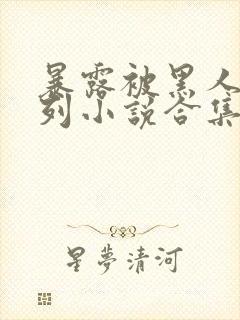 暴露被黑人
列小说合集
星夢清河